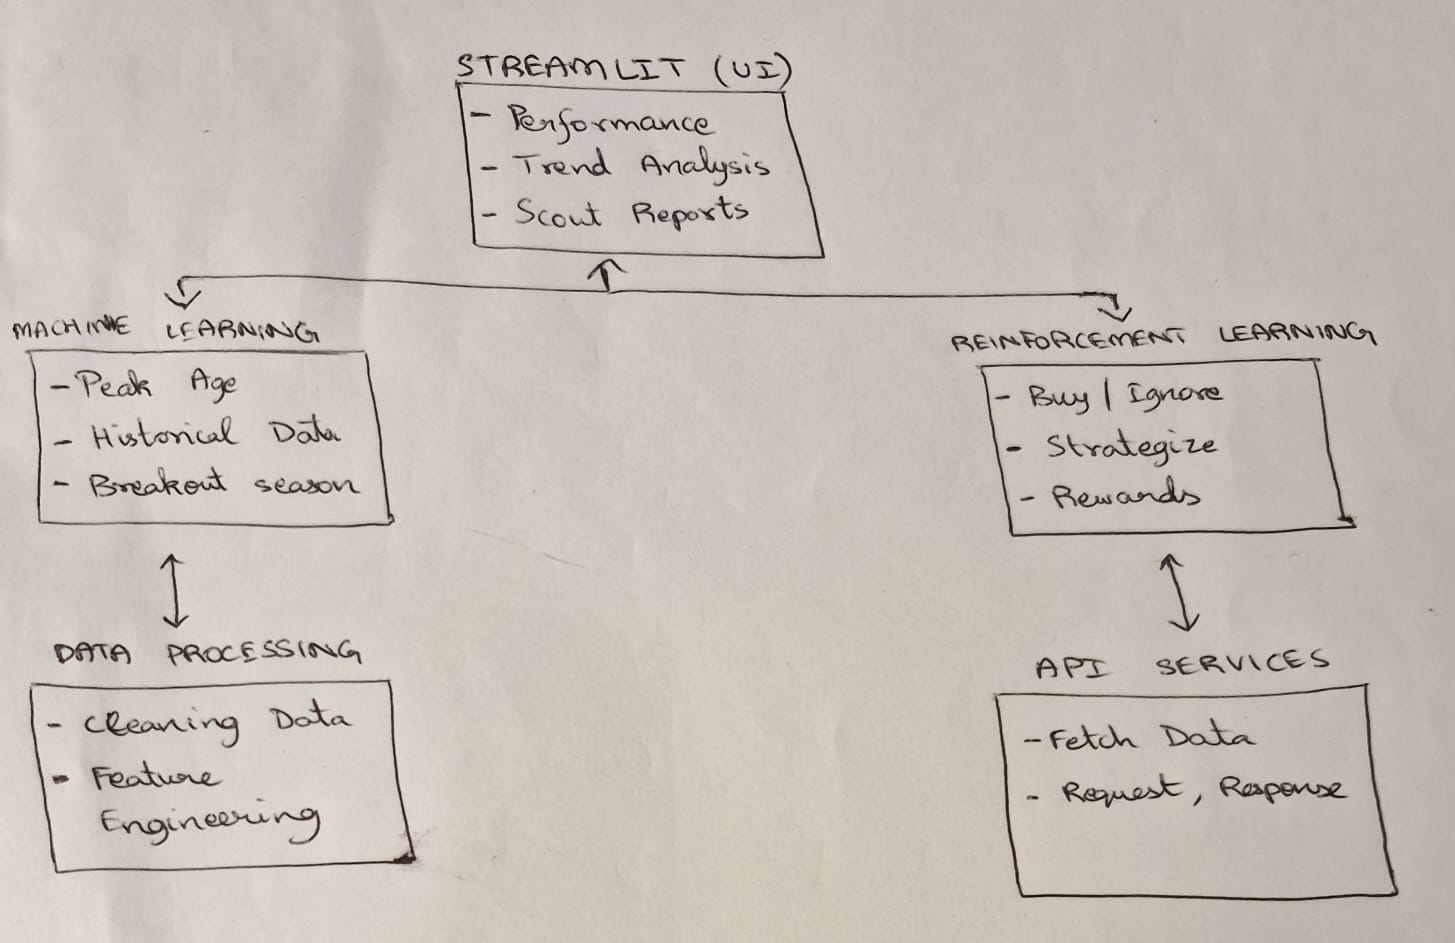 STREAMLIT (UI)
- Performance
- Trend Analysis
- Scout Reports
MACHINE LEARNING
- Peak Age
- Historical Data
- Breakout season
REINFORCEMENT LEARNING
- Buy | Ignore
- Strategize
- Rewards
DATA PROCESSING
- Cleaning Data
- Feature
Engineering
API SERVICES
- Fetch Data
- Request, Response